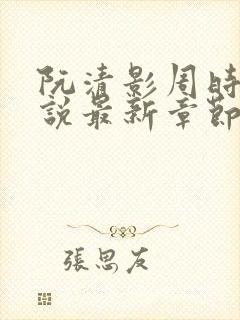 阮清影周時
說最新章節
張思友